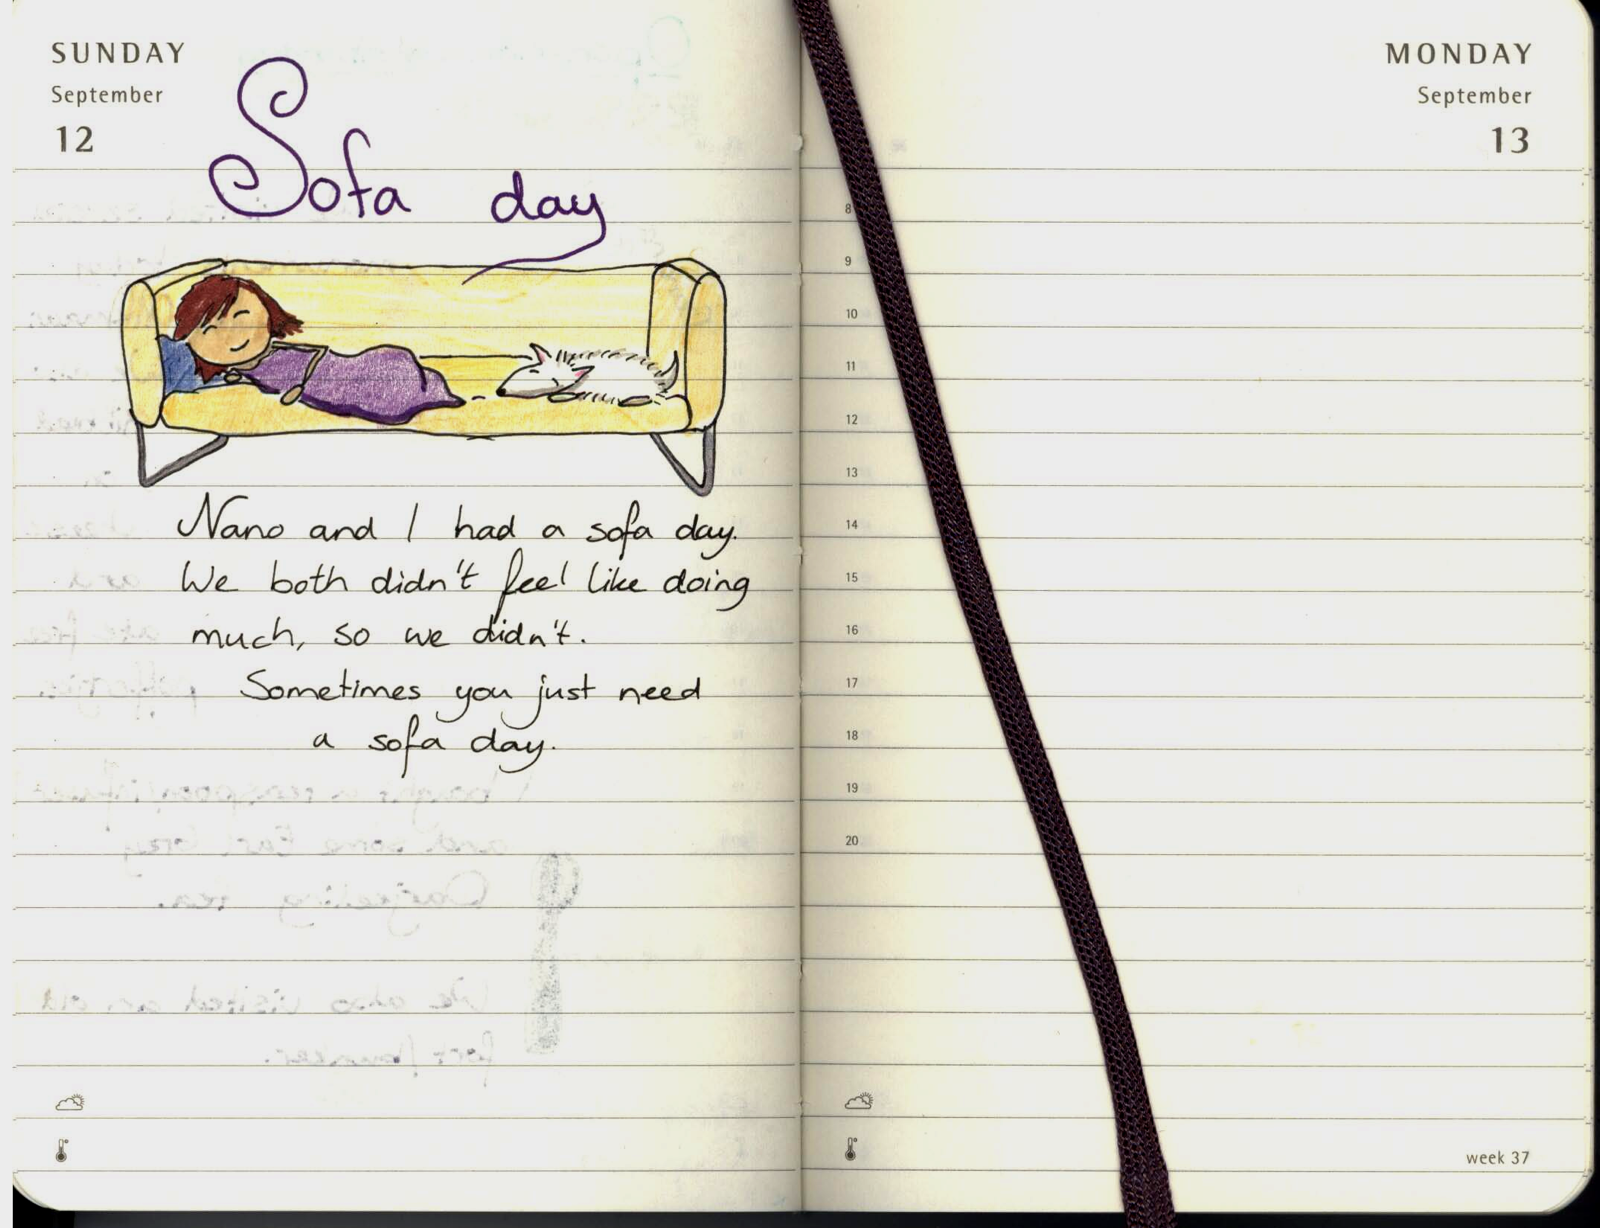 SUNDAY
September
12
Sofa day
Nano and I had a sofa day.
We both didn't feel like doing
much, so we didn't.
Sometimes you just need
a sofa day.
MONDAY
September
13
8
9
10
11
12
13
14
15
16
17
18
19
20
week 37